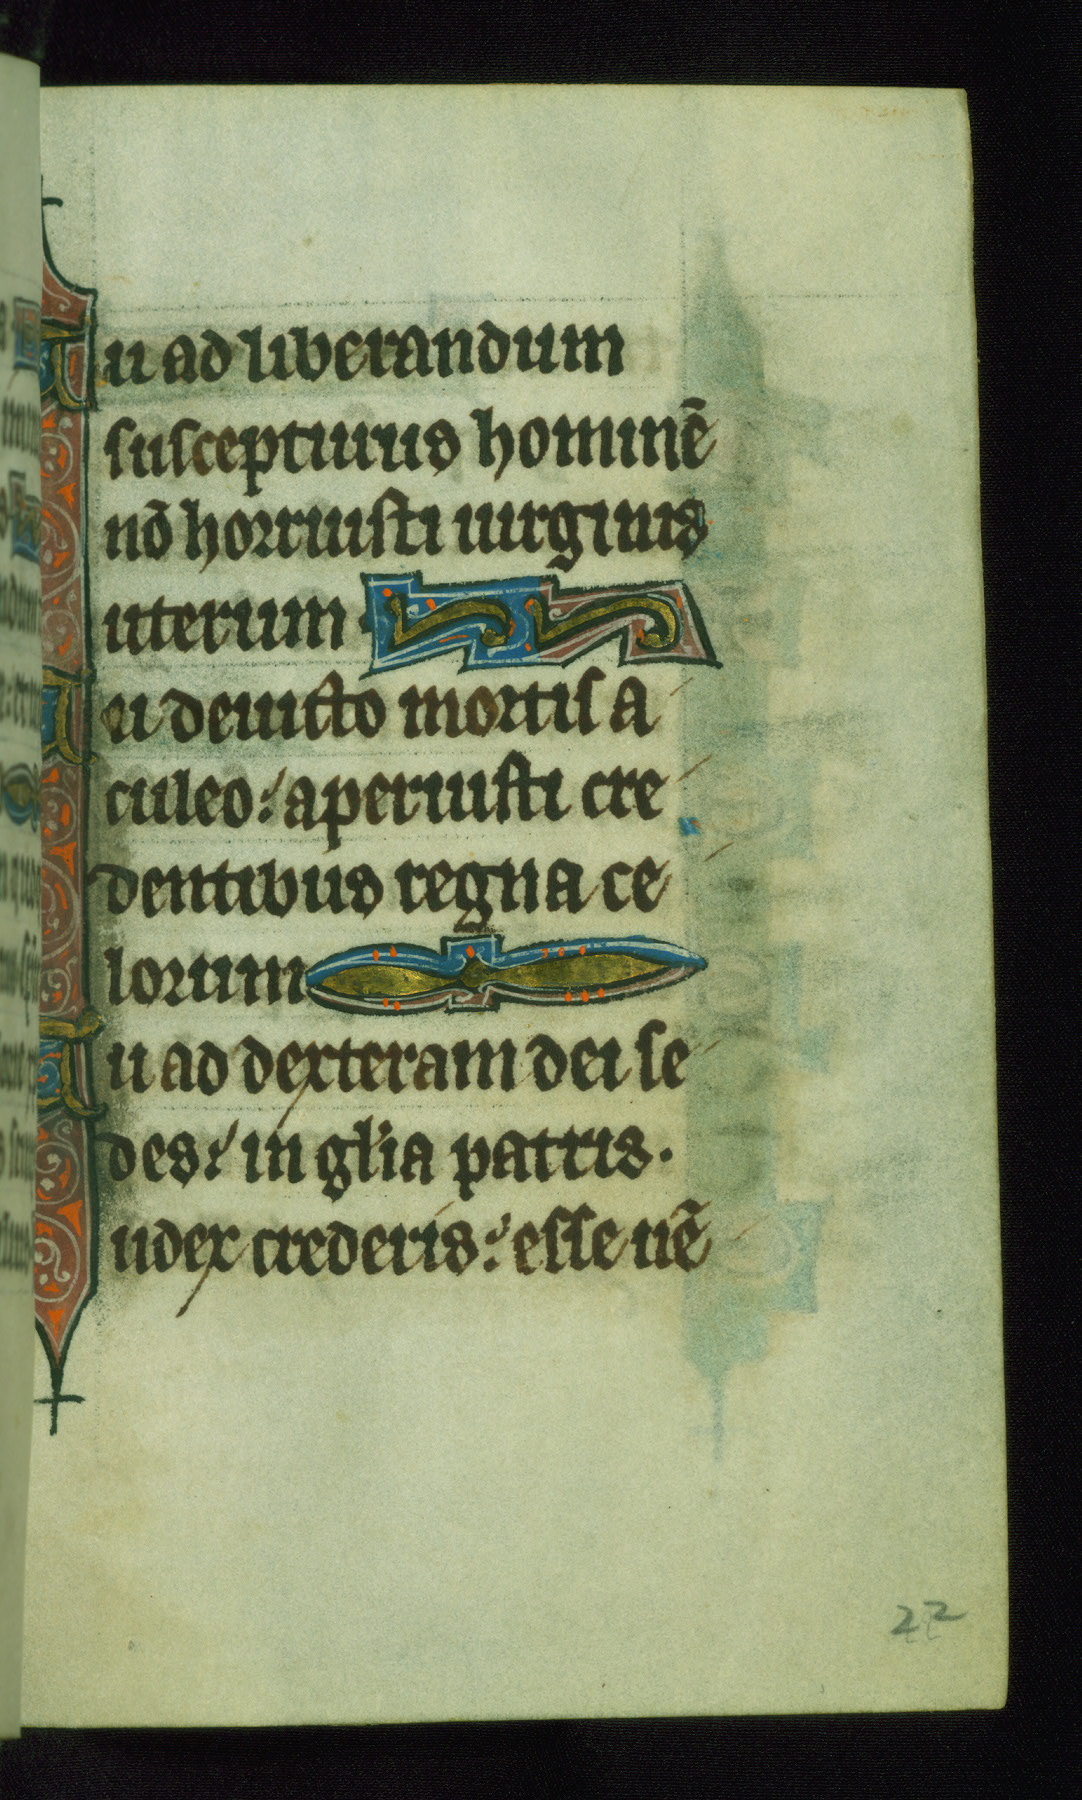 Tu ad liberandum
suscepturus hominē
nō horruisti uirginis
uterum.
Tu deuicto mortis a
culeo: aperuisti cre
dentibus regna ce
lorum
Tu ad dexteram dei se
des: in gl'ia patris.
Iudex crederis: esse uē
22